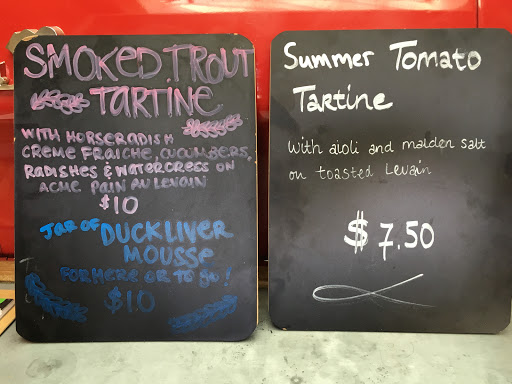 SMOKED TROUT
TARTINE
WITH HORSERADISH
CREME FRAICHE, CUCUMBERS,
RADISHES & WATERCRESS ON
ACME PAIN AU LEVAIN
$10
JAR OF DUCK LIVER
MOUSSE
FOR HERE OR TO GO!
$10
Summer Tomato
Tartine
With aioli and maldon salt
on toasted Levain
$7.50